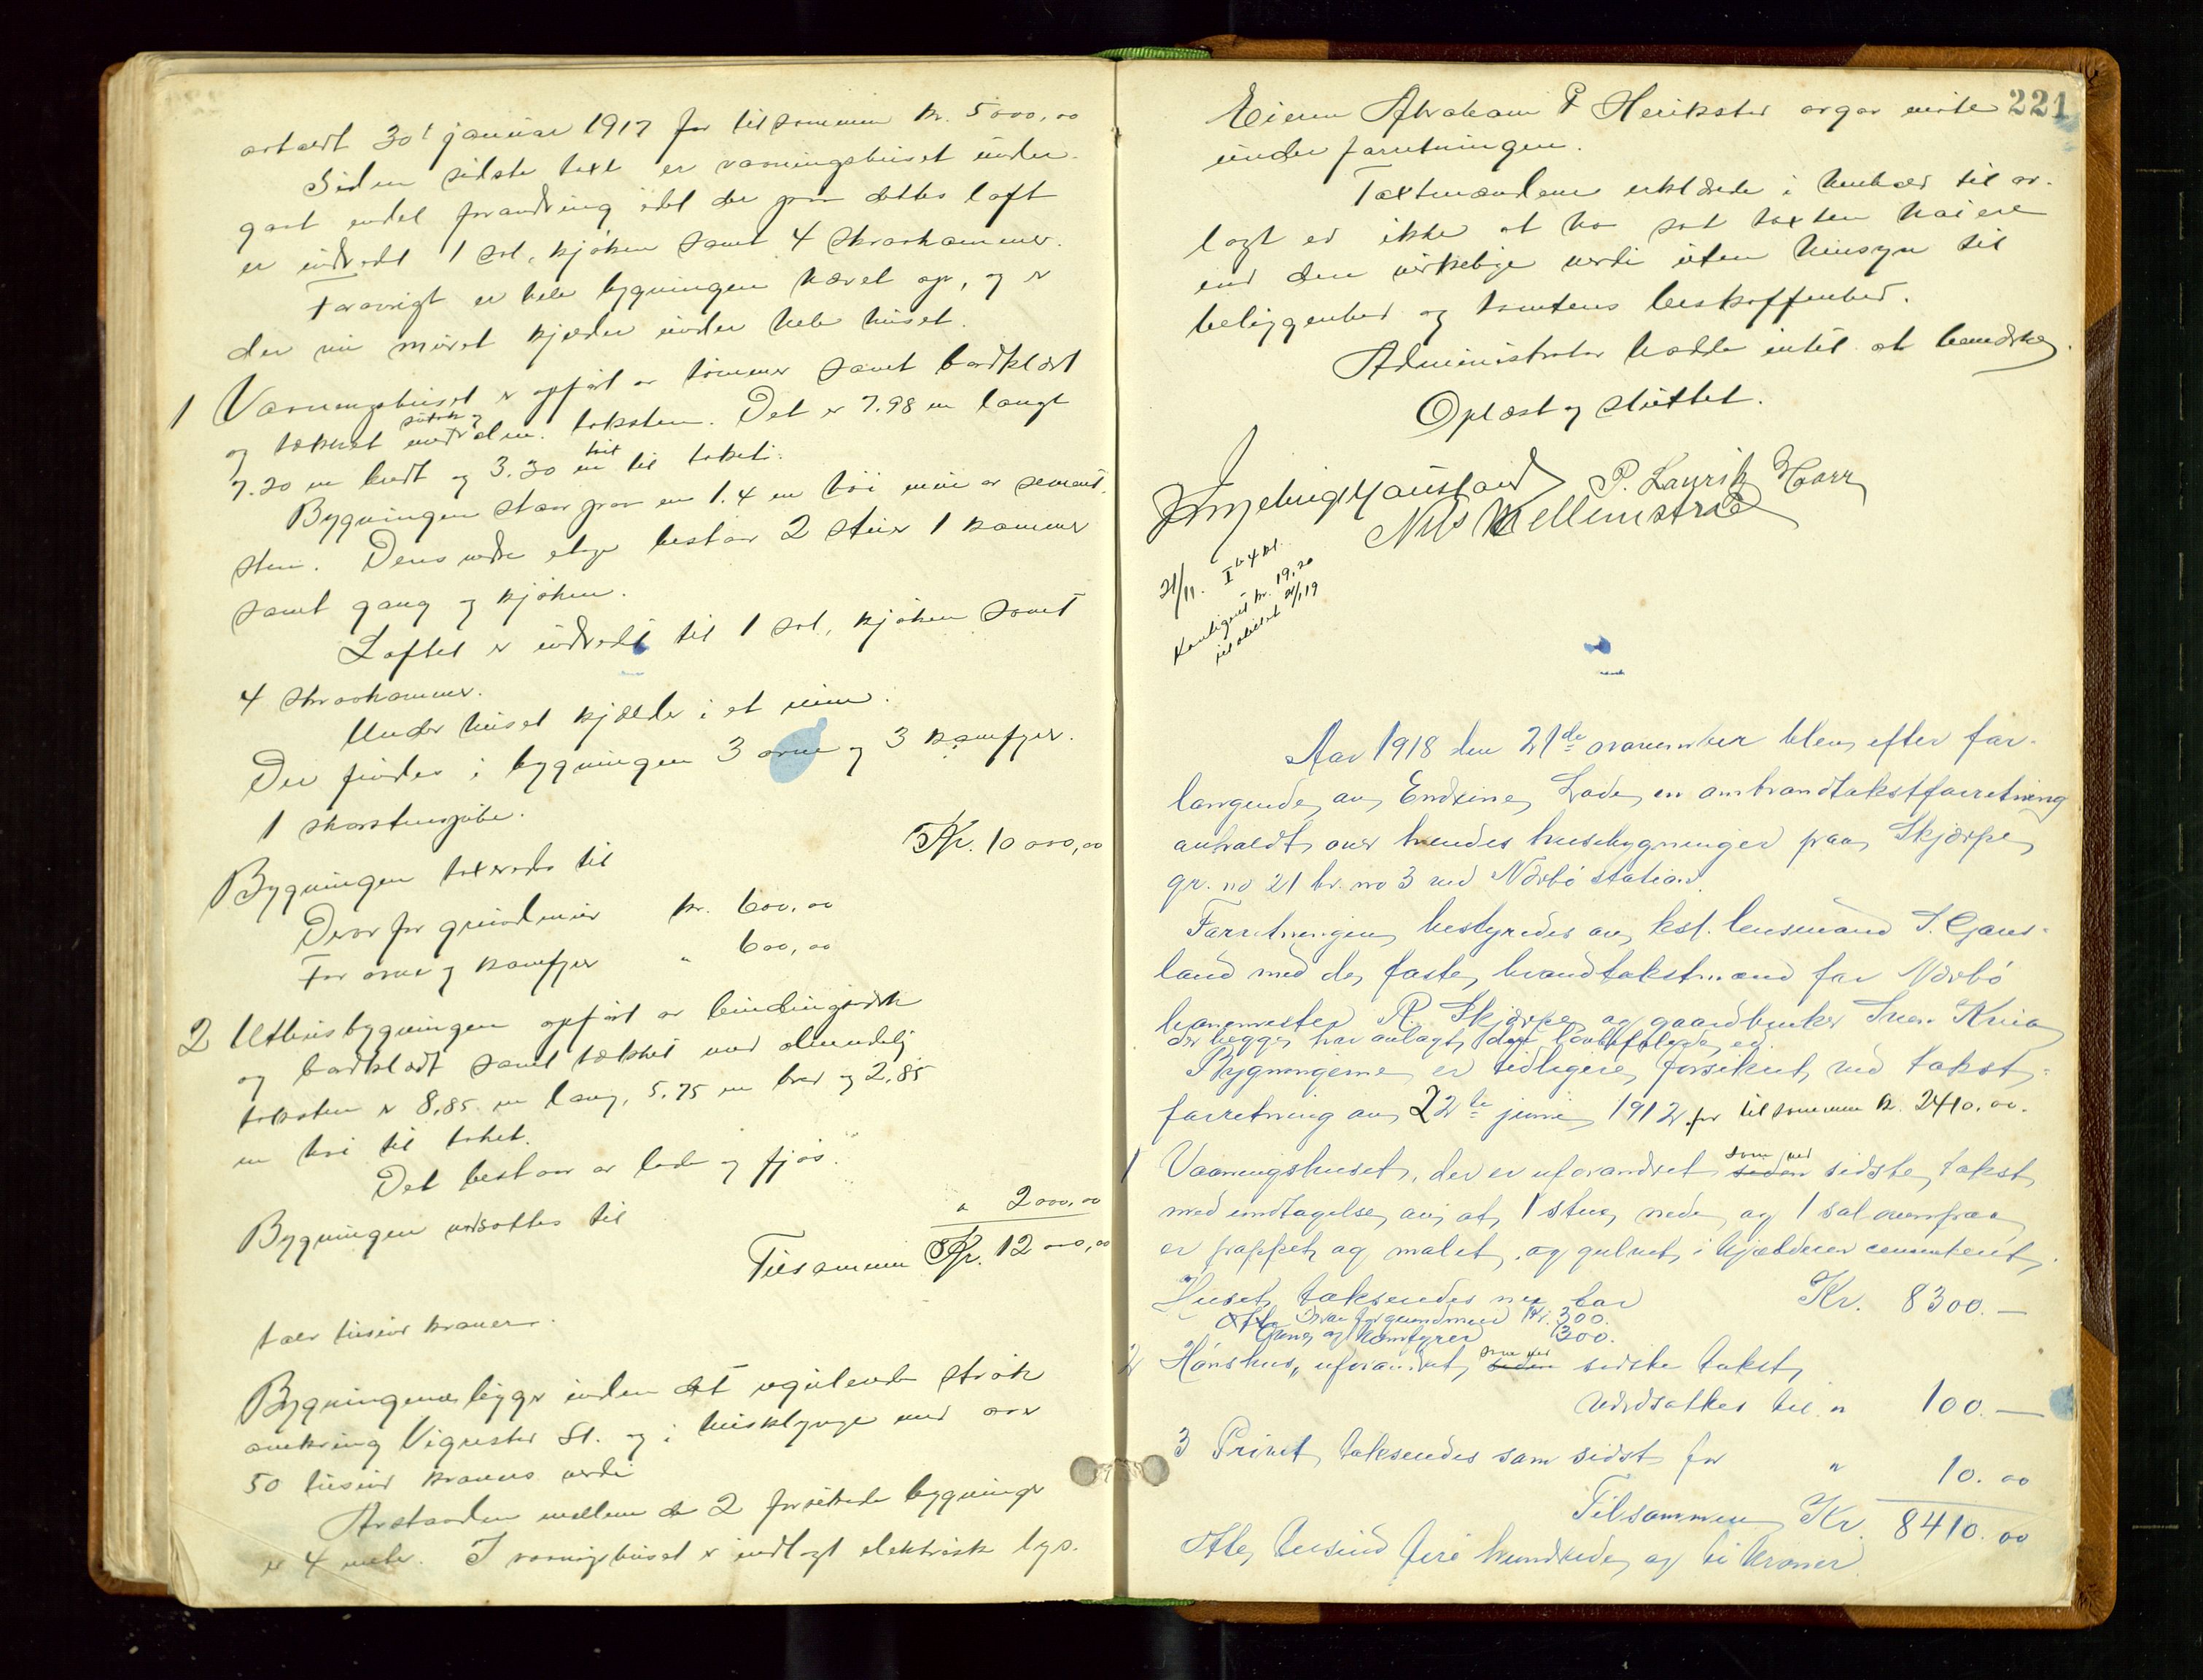 avholdt 30t januar 1917 for tilsammen kr. 5000,00
Siden sidste taxt er vaaningshuset under-
gaat endel forandring idet der paa dettes loft
er indredt 1 sal, kjøken samt 4 skraakammer.
Foravrigt er hele bygningen hævet op, og er
der nu muret kjælder under hele huset.
1 Vaaningshuset er opført av tømmer samt bordklædt
og tækket med sutak og alm. taksten. Det er 7.98 m langt
7.20 m bredt og 3.30 m høit til taket.
Bygningen staar paa en 1.4 m høi mur av sement-
sten. Dens nedre etage bestaar 2 stuer 1 kammer
samt gang og kjøken.
Loftet er indredt til 1 sal, kjøken samt
4 skraakammer.
Under huset kjælder i et rum.
Der findes i bygningen 3 ovne og 3 komfyer.
1 skorstenspibe.
Bygningen taxeredes til Kr. 10 000,00
Derav for grundmur kr. 600,00
For ovne og komfyer " 600,00
2 Uthusbygningen opført av bindingsverk
og bordklædt samt tækket med almindelig
taksten er 8,85 m lang, 5,75 m bred og 2,85
m høi til taket.
Det bestaar av lade og fjøs.
Bygningen værdsattes til " 2000,00
Tilsammen Kr. 12 000,00
tolv tusind kroner.
Bygningerne ligger inden det regulerede strøk
omkring Vigrestad St. og i husklynge med over
50 tusind kroners verdi
Avstanden mellem de 2 forsikrede bygninger
er 4 meter. I vaaningshuset er indlagt elektrisk lys.
221
Eieren Abraham P Herikstad avgav møte
under forretningen.
Taxtmændene erklærede i henhold til av-
lagt ed ikke at ha sat taxten høiere
end den virkelige verdi uten hensyn til
beliggenhed og tomtens beskaffenhed.
Administrator hadde intet at bemærke.
Oplæst og sluttet.
P. Laurits Haarr
21/11. I b 4 kl.
Kontigent kr. 19,20
21/1 19
Aar 1918 den 21de november blev efter for-
langende av Endrine Lode en ombrandtakstforretning
avholdt over hendes husebygninger paa Skjærpe
gr. no 21 br. no 3 ved Nærbø station.
Forretningen bestyredes av kst. lensmand S. Gaus-
land med de faste brandtakstmænd for Nærbø
banemester R. Skjærpe og gaardbruker Sven Kvia
der begge har avlagt den lovbefalede ed.
Bygningerne er tidligere forsikret ved takst-
forretning av 22de juni 1912 for tilsammen kr. 2410.00.
1 Vaaningshuset, der er uforandret som ved sidste takst
med undtagelse av at 1 stue nede og 1 sal ovenpaa
er pappet og malet, og gulvet i kjælderen cementeret.
Huset takseredes nu for Kr. 8300.—
Derav for grundmur Kr. 300.
Ovne og komfyrer 300.
2 Hønshus, uforandret som ved sidste takst,
værdsattes til " 100.—
3 Privet takseredes som sidst for " 10.00
Tilsammen Kr. 8410.00
Otte tusind fire hundrede og ti kroner.